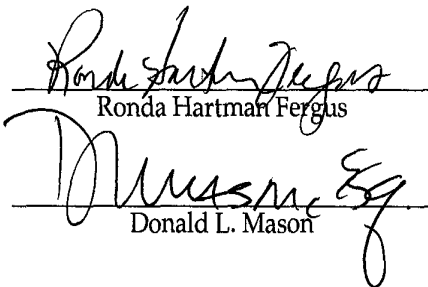 Ronda Hartman Fergus
Ronda Hartman Fergus
D Mason, Esq.
Donald L. Mason